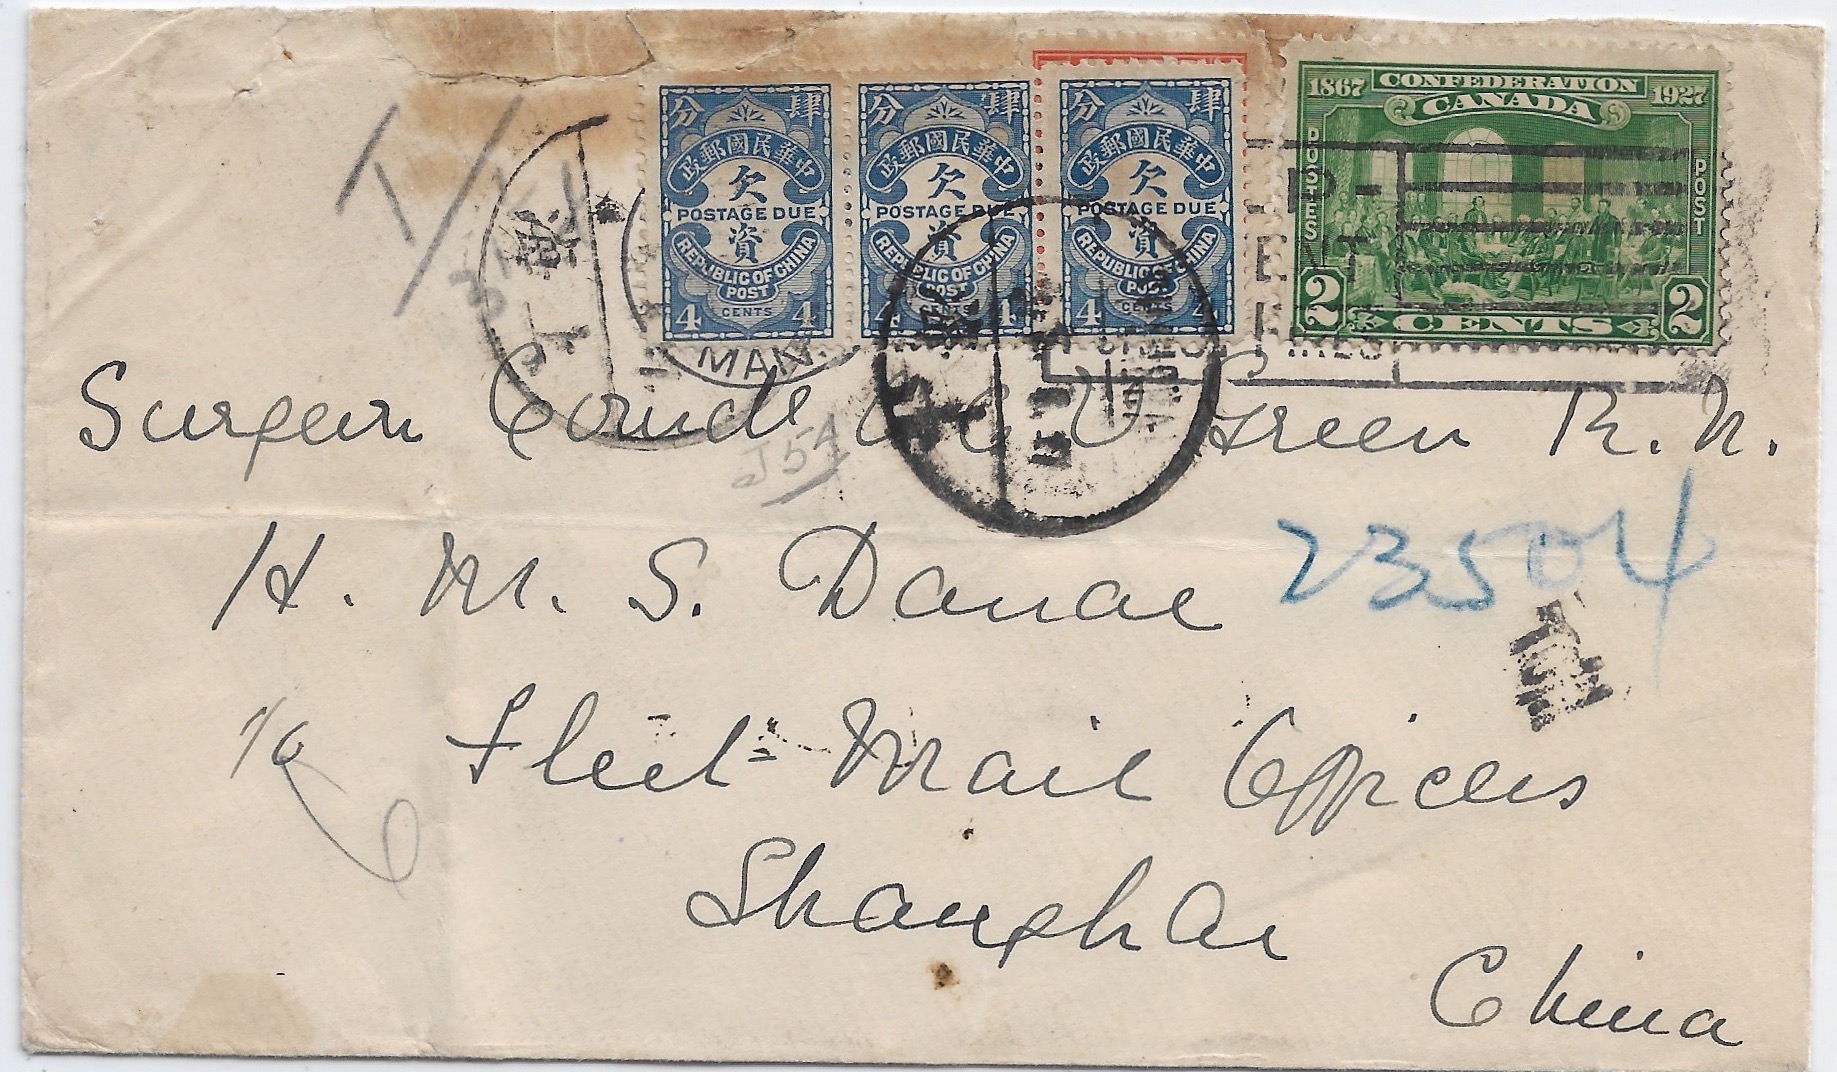 分 肆 分 肆 分 肆
中華民國郵政 中華民國郵政 中華民國郵政
欠 欠 欠
POSTAGE DUE POSTAGE DUE POSTAGE DUE
資 資 資
REPUBLIC OF CHINA REPUBLIC OF CHINA REPUBLIC OF CHINA
POST POST POST
CENTS CENTS CENTS
4 4 4 4 4 4
1867 CONFEDERATION 1927
CANADA
POSTES POST
2 CENTS 2
MAN.
T/
J54
Surgeon Comdr Green R. N.
H. M. S. Danae
23504
c/o Fleet Mail Officers
Shanghai
China